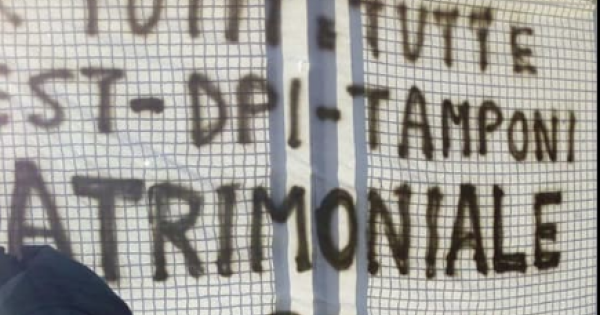 TUTTI E TUTTE
EST-DPI-TAMPONI
ATRIMONIALE